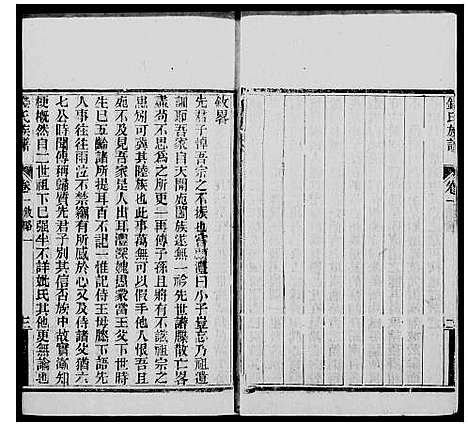 氏族譜
卷一
敘畧
先君子悼吾宗之不振也嘗謂澧曰小子豈忘乃祖遺
訓耶吾家自天開虎闥族遂無一衿先世譜牒散亡畧
盡苟不思爲之所更一再傳子孫將有不該祖宗之
思可冀其睦族也此事萬無可以假手他人俱吾且
不及見吾家是人出耳澧深媿愚蒙當王父下世時
生已五齡諸所提耳百不記一惟記侍王母膝下語先
人事往往雨泣不禁竊有所感於心又及侍諸父猶六
七公時聞傳稱歸質先君子別其信否族中故實漸知
梗槪然自二世祖下已強半不詳妣氏其他更無論也
氏族譜
卷一
三